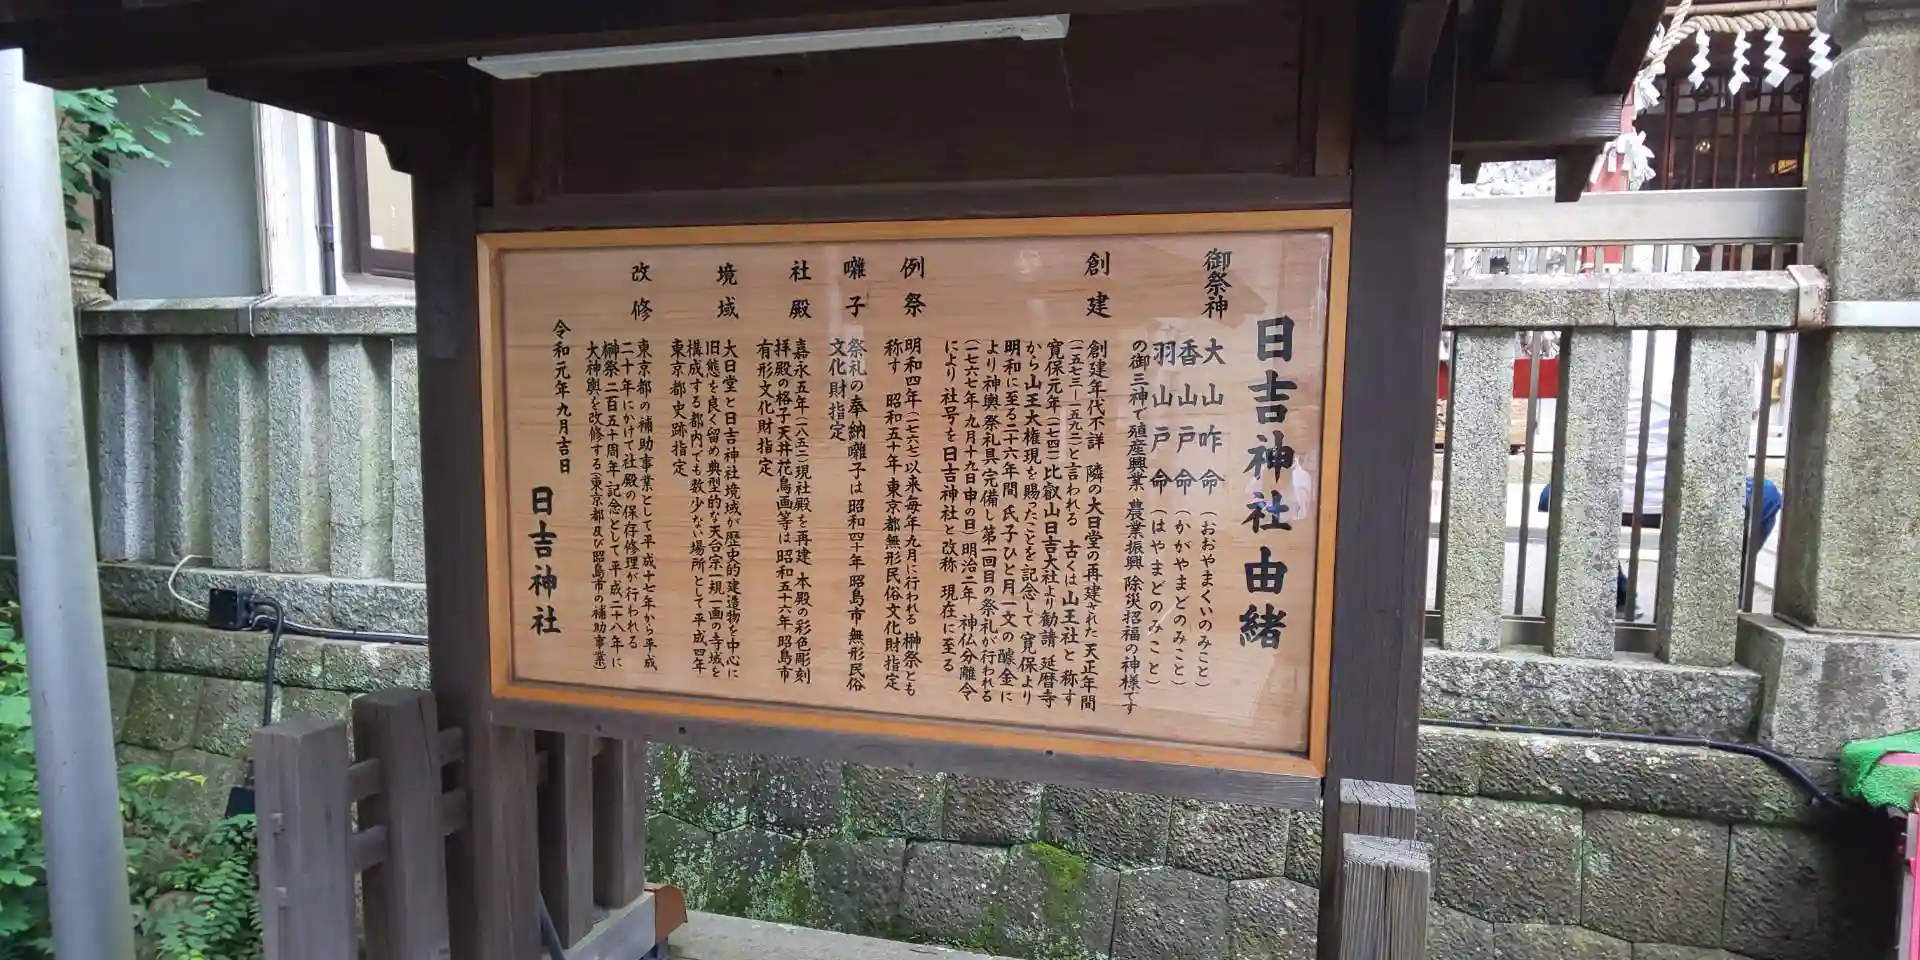 日吉神社由緒
御祭神
大山咋命(おおやまくいのみこと)
香山戸命(かがやまどのみこと)
羽山戸命(はやまどのみこと)
の御三神で殖産興業 農業振興 除災招福の神様です
創建
創建年代不詳 隣の大日堂の再建された天正年間
(一五七三―一五九二)と言われる 古くは山王社と称す
寛保元年(一七四一)比叡山日吉大社より勧請 延暦寺
から山王大権現を賜ったことを記念して寛保より
明和に至る二十六年間 氏子ひと月一文の醵金に
より神輿祭礼具完備し第一回目の祭礼が行われる
(一七六七年九月十九日申の日)明治二年 神仏分離令
により社号を日吉神社と改称 現在に至る
例祭
明和四年(一七六七)以来毎年九月に行われる 榊祭とも
称す 昭和五十年 東京都無形民俗文化財指定
囃子
祭礼の奉納囃子は昭和四十年昭島市無形民俗
文化財指定
社殿
嘉永五年(一八五二)現社殿を再建 本殿の彩色彫刻
拝殿の格子天井花鳥画等は昭和五十六年昭島市
有形文化財指定
境域
大日堂と日吉神社境域が歴史的建造物を中心に
旧態を良く留め典型的な天台宗一規一画の寺域を
構成する都内でも数少ない場所として平成四年
東京都史跡指定
改修
東京都の補助事業として平成十七年から平成
二十年にかけて社殿の保存修理が行われる
榊祭二百五十周年記念として平成二十八年に
大神輿を改修する(東京都及び昭島市の補助事業)
令和元年九月吉日
日吉神社